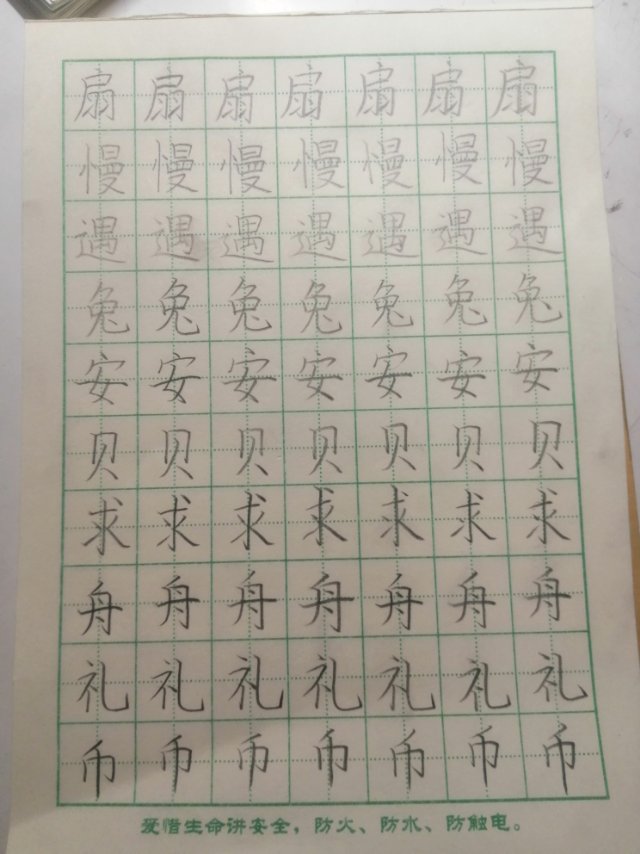 扇扇扇扇扇扇扇
慢慢慢慢慢慢慢
遇遇遇遇遇遇遇
兔兔兔兔兔兔兔
安安安安安安安
贝贝贝贝贝贝贝
求求求求求求求
舟舟舟舟舟舟舟
礼礼礼礼礼礼礼
币币币币币币币
爱惜生命讲安全，防火、防水、防触电。